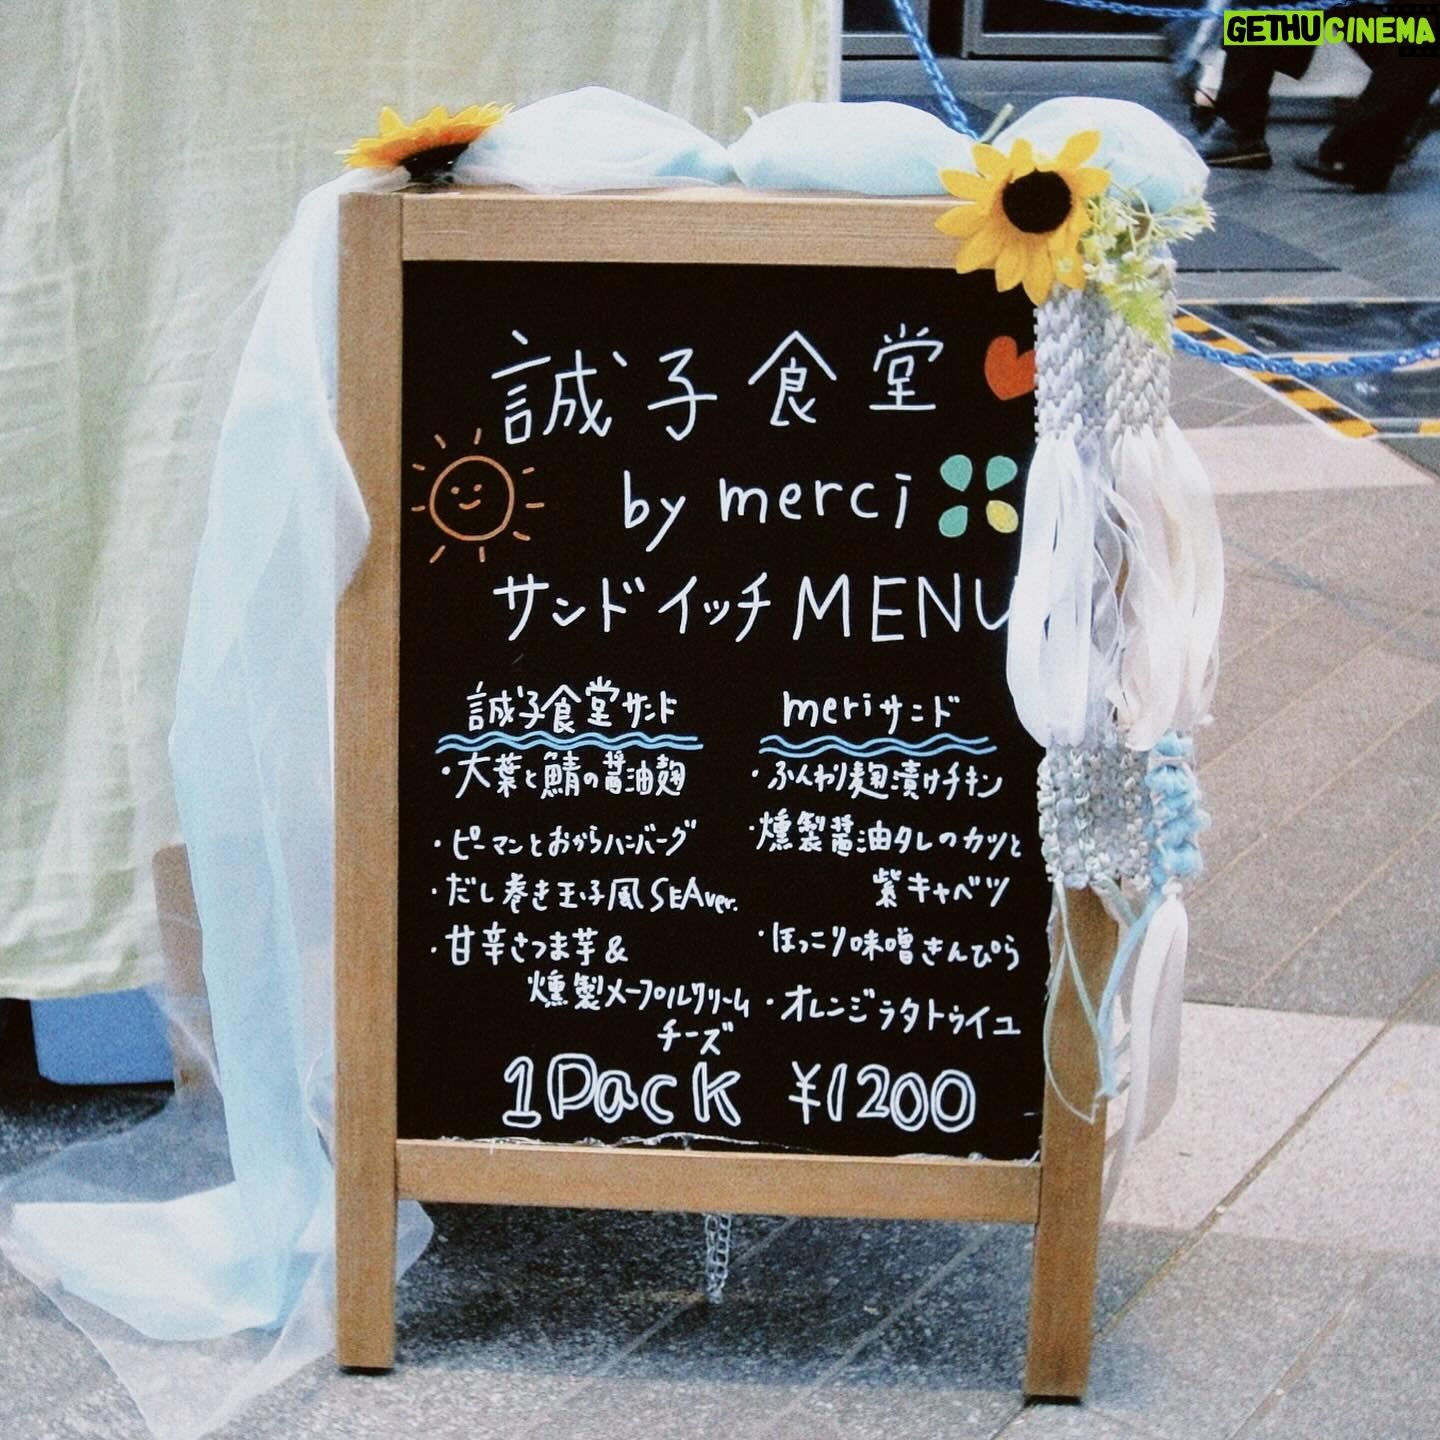 GETHUCINEMA
誠子食堂
by merci
サンドイッチMENU
誠子食堂サンド
・大葉と鯖の醤油麹
・ピーマンとおからハンバーグ
・だし巻き玉子風SEAver.
・甘辛さつま芋&
燻製メープルクリーム
チーズ
meriサンド
・ふんわり麹漬けチキン
・燻製醤油タレのカツと
紫キャベツ
・ほっこり味噌きんぴら
・オレンジラタトゥイユ
1Pack ¥1200